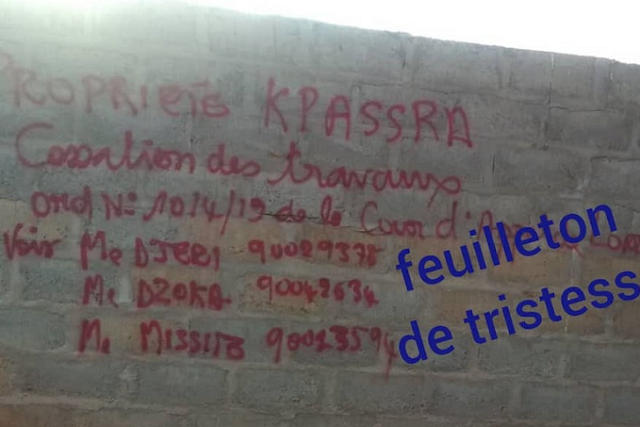 PROPRIETE KPASSRA
Cessation des travaux
Ord N° 1014/19 de la Cour d'App
Voir Me DJERI 90029378
Me DZOKA 90042634
Me MISSITE 90013594
feuilleton
de tristess